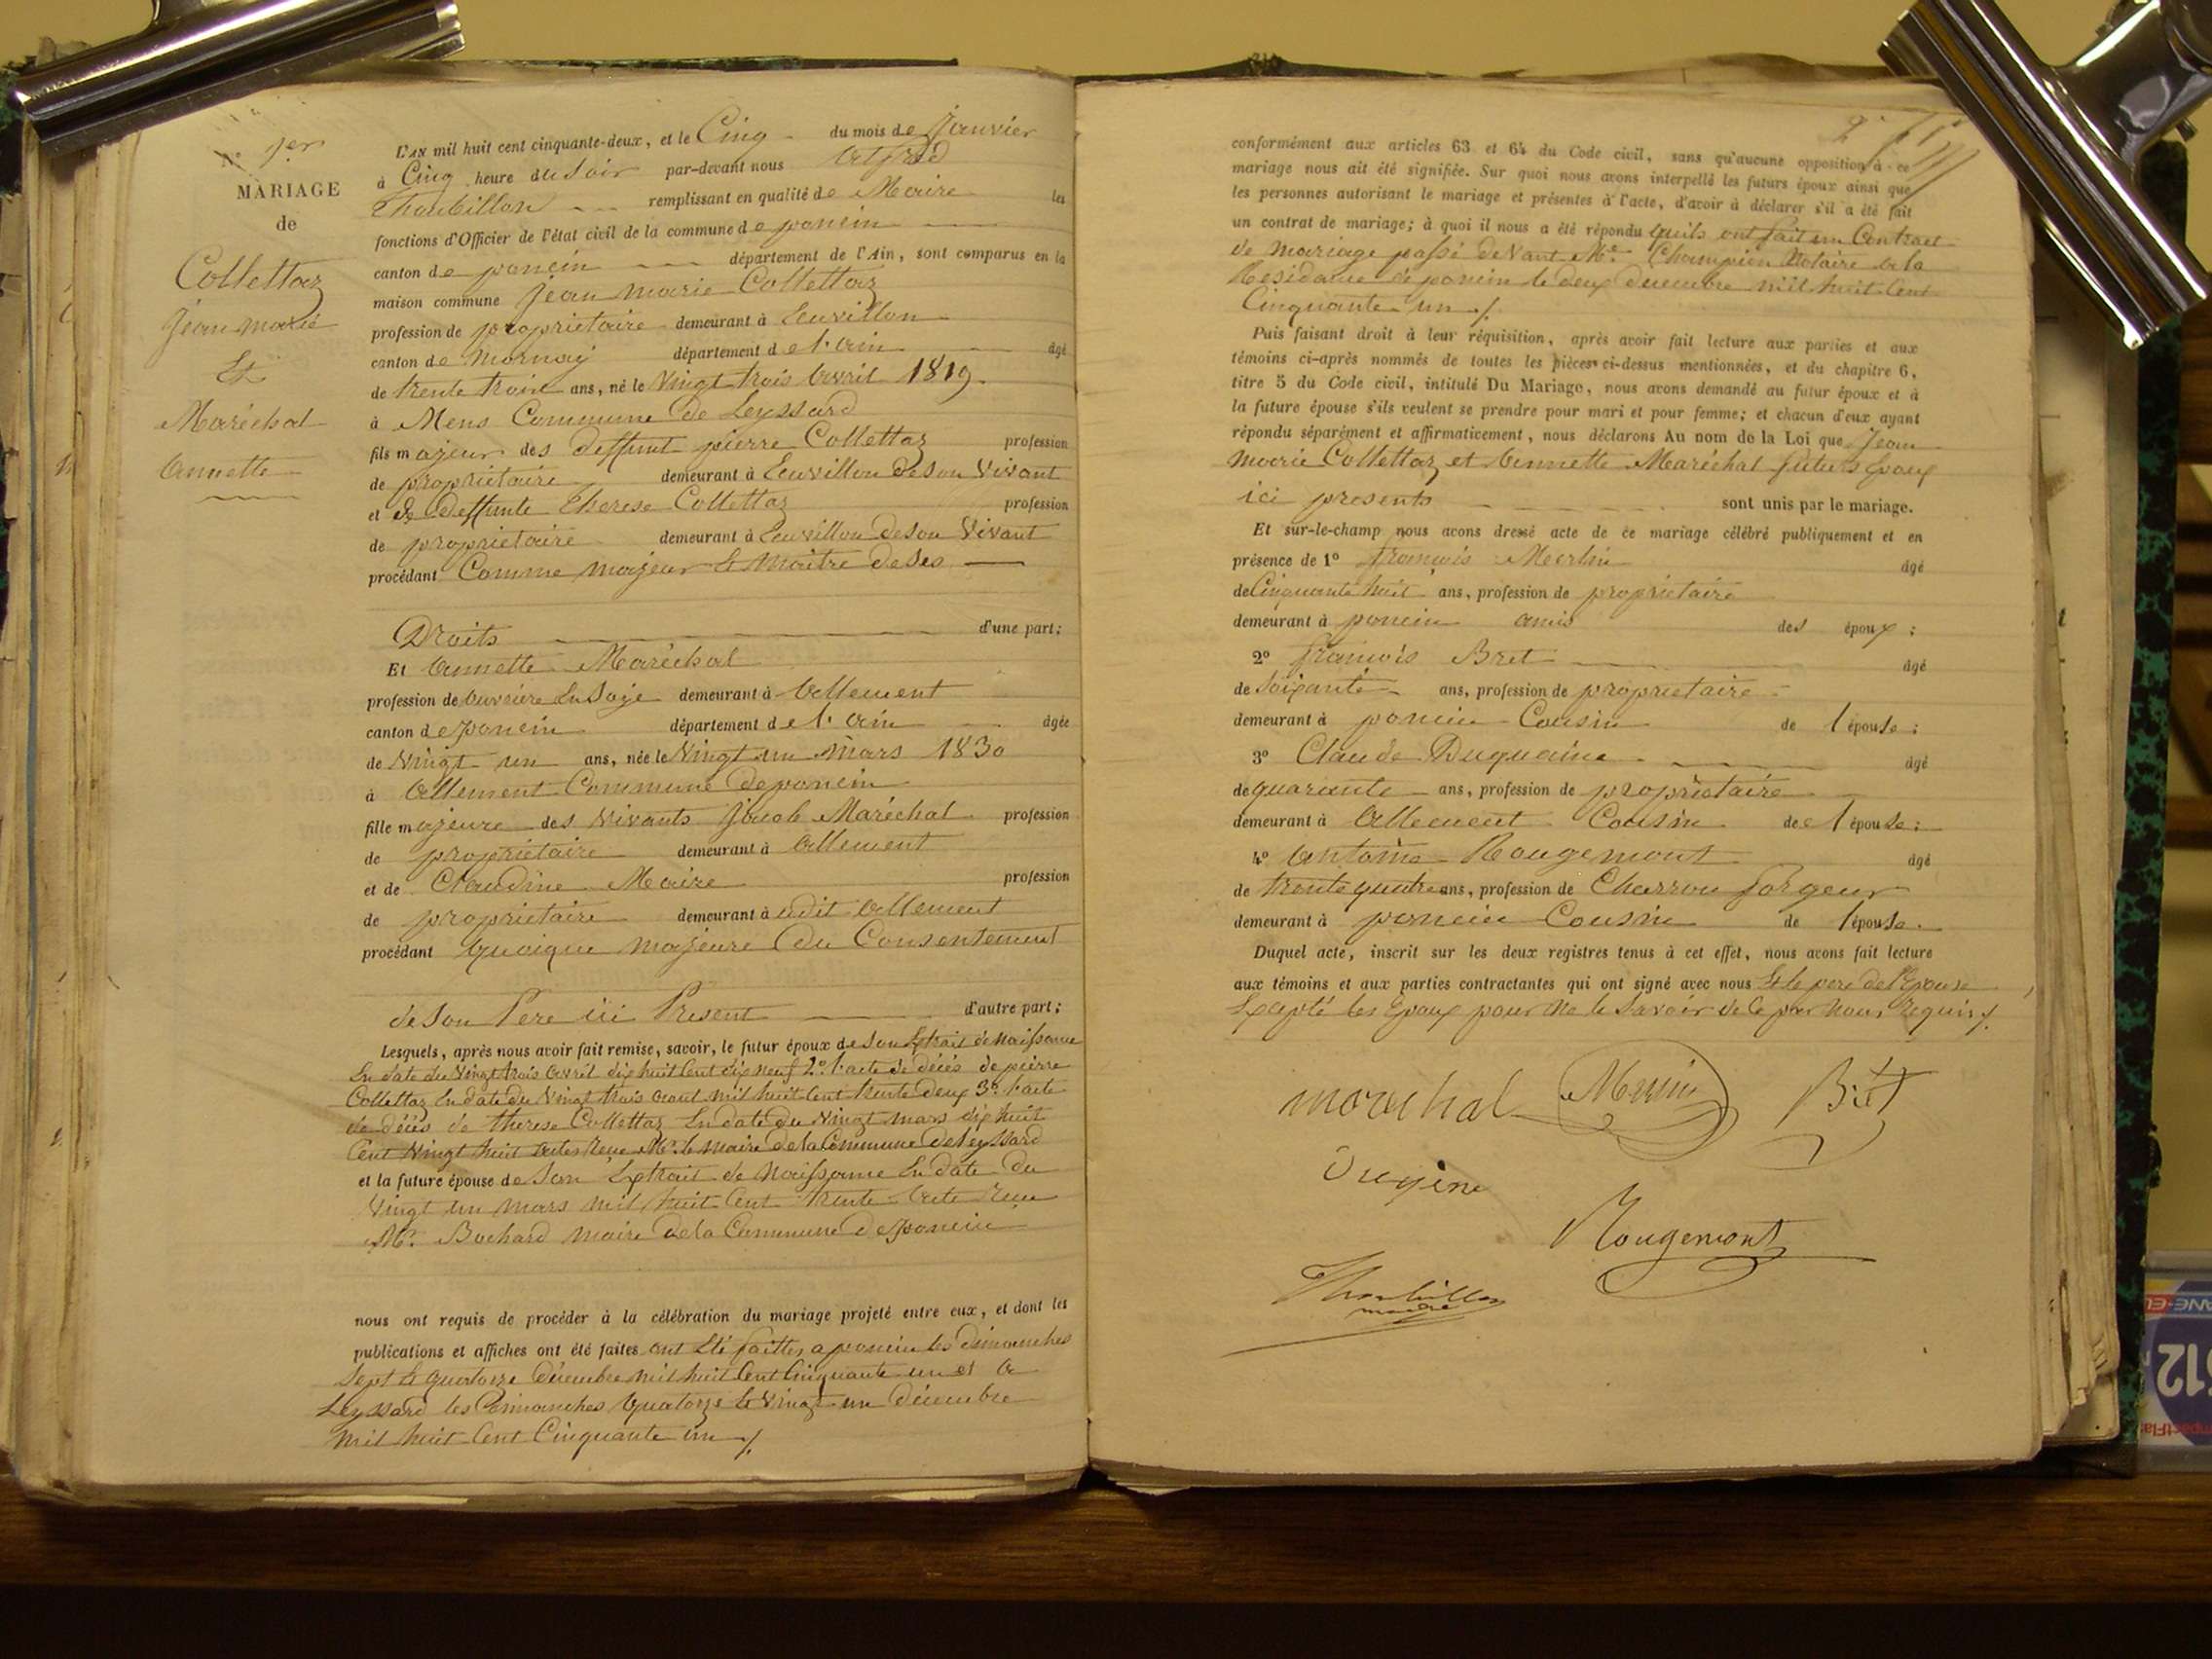 N° 1er
MARIAGE
de
Collettaz
Jean marie
Et
Maréchal
Annette
L'AN mil huit cent cinquante-deux, et le Cinq du mois de Janvier
à Cinq heure du Soir par-devant nous Alfred
Thoubillon remplissant en qualité de Maire les
fonctions d'Officier de l'état civil de la commune de poncin
canton de poncin département de l'Ain, sont comparus en la
maison commune Jean marie Collettaz
profession de proprietaire demeurant à Leuvillon
canton de Mornay département de l'ain âgé
de trente trois ans, né le Vingt trois Avril 1819.
à Mens Commune de Leyssard
fils majeur des deffunt pierre Collettaz profession
de proprietaire demeurant à Leuvillon de son Vivant
et de deffunte Therese Collettaz profession
de proprietaire demeurant à Leuvillon de son Vivant
procédant Comme majeur Et Maitre de Ses
Droits d'une part;
Et Annette Maréchal
profession de ouvriere En Soije demeurant à Allement
canton de poncin département de l'ain âgée
de Vingt un ans, née le Vingt un mars 1830
à Allement Commune de poncin
fille majeure des Vivants Jacob Maréchal profession
de proprietaire demeurant à Allement
et de Claudine Maire profession
de proprietaire demeurant à udit Allement
procédant quoique majeure du Consentement
de Son Pere ici Present d'autre part;
Lesquels, après nous avoir fait remise, savoir, le futur époux de Son Extrait de Naissance
En date du Vingt trois avril dix huit Cent dix neuf 2° l'acte de décés de pierre
Collettaz En date du Vingt trois aout mil huit Cent trente deux 3° l'acte
de décés de therese Collettaz En date du Vingt mars dix huit
Cent Vingt huit actes Reçu Mr. le maire de la Commune de Leyssard
et la future épouse de Son Extrait de Naissance En date du
Vingt un mars mil huit Cent trente Acte reçu
Mr. Bochard maire de la Commune de poncin
nous ont requis de procéder à la célébration du mariage projeté entre eux, et dont les
publications et affiches ont été faites ont Eté faittes a poncin les dimanches
Sept Et quatorze décembre mil huit Cent Cinquante un et a
Leyssard les Dimanches quatorze Et Vingt un décembre
mil huit Cent Cinquante un
conformément aux articles 63 et 64 du Code civil, sans qu'aucune opposition à ce
mariage nous ait été signifiée. Sur quoi nous avons interpellé les futurs époux ainsi que
les personnes autorisant le mariage et présentes à l'acte, d'avoir à déclarer s'il a été fait
un contrat de mariage; à quoi il nous a été répondu quils ont fait un Contract
de mariage passé devant Me. Champion Notaire a la
Residance de poncin le deux decembre mil huit Cent
Cinquante un
Puis faisant droit à leur réquisition, après avoir fait lecture aux parties et aux
témoins ci-après nommés de toutes les pièces ci-dessus mentionnées, et du chapitre 6,
titre 5 du Code civil, intitulé Du Mariage, nous avons demandé au futur époux et à
la future épouse s'ils veulent se prendre pour mari et pour femme; et chacun d'eux ayant
répondu séparément et affirmativement, nous déclarons Au nom de la Loi que Jean
marie Collettaz et Annette Maréchal futurs Epoux
ici presents sont unis par le mariage.
Et sur-le-champ nous avons dressé acte de ce mariage célébré publiquement et en
présence de 1° francois Merlin âgé
de Cinquante huit ans, profession de proprietaire
demeurant à poncin amis des époux;
2° francois Bret âgé
de Soixante ans, profession de proprietaire
demeurant à poncin Cousin de l'épouse;
3° Claude Duguaine âgé
de quarante ans, profession de proprietaire
demeurant à Allement Cousin de l'épouse;
4° Antoine Rougemont âgé
de trente quatre ans, profession de Charron forgeur
demeurant à poncin Cousin de l'épouse.
Duquel acte, inscrit sur les deux registres tenus à cet effet, nous avons fait lecture
aux témoins et aux parties contractantes qui ont signé avec nous Et le pere de l'Epouse
Excepté les Epoux pour Ne le Savoir de Ce par Nous Requis
marechal Merlin Bret
Rougemont
Thoubillon
maire